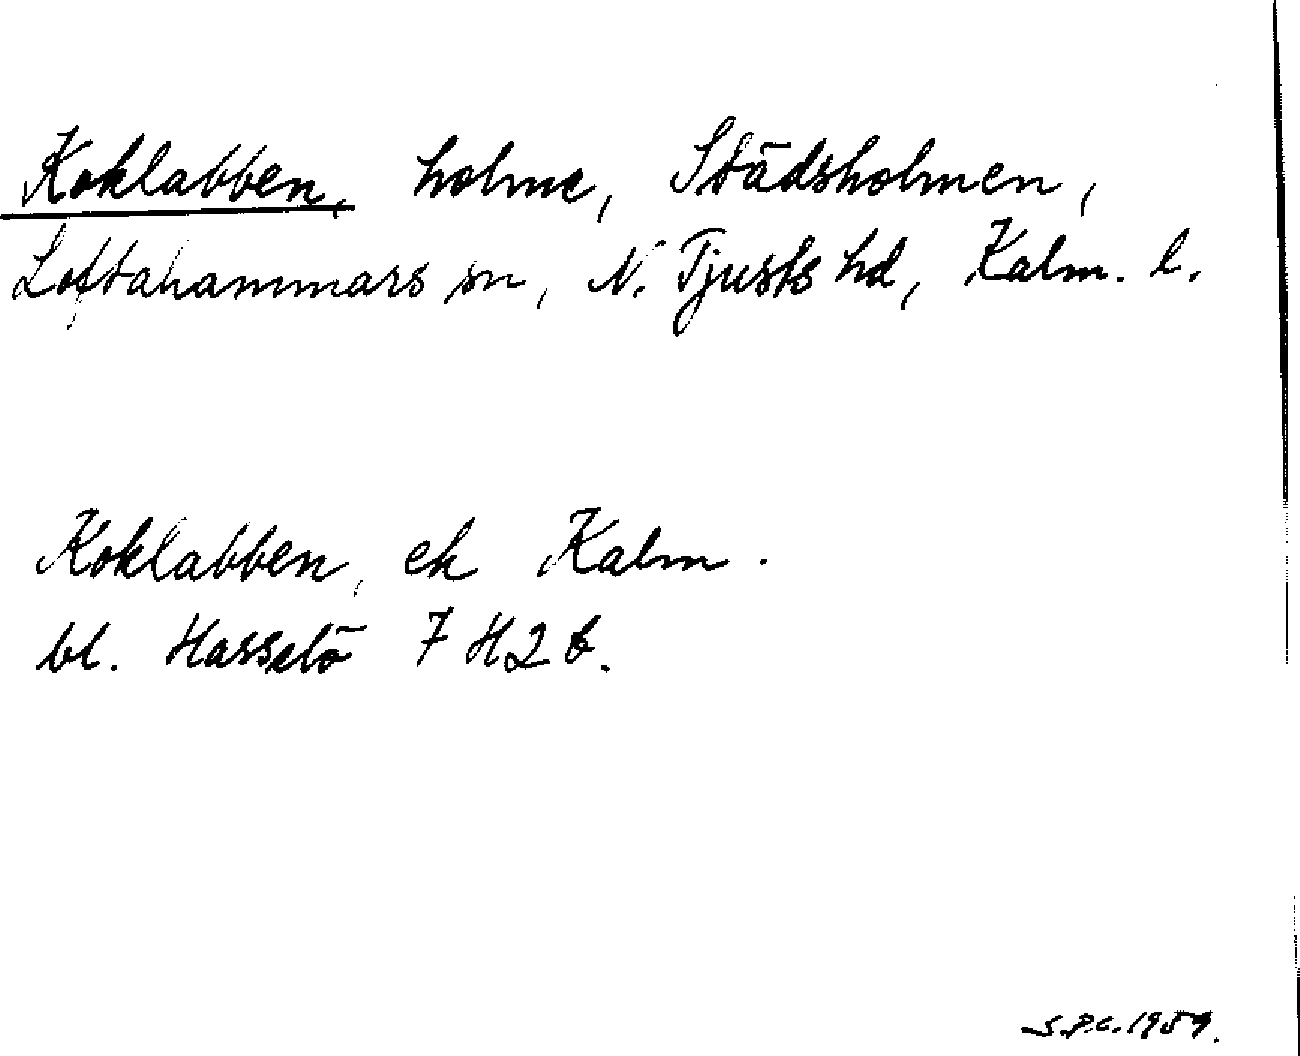 Koklabben, holme, Städsholmen,
Loftahammars sn, N. Tjusts hd, Kalm. l.
Koklabben, ek Kalm.
bl. Hasselö 7 H2 b.
S.P.C. 1959.